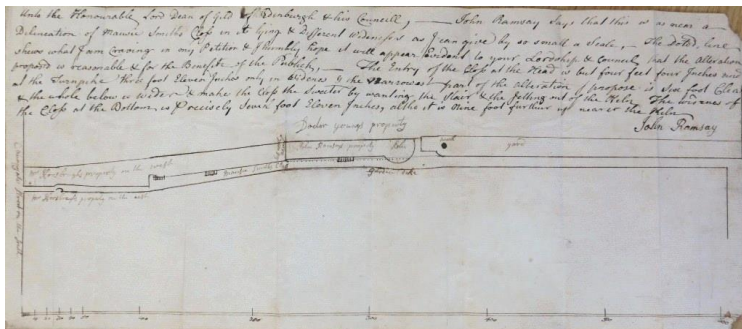 Unto the Honourable Lord Dean of Gild of Edinburgh & his Councill, — John Ramsay Says that this is as near a
Delineation of Mausie Smiths Closs in its lying & Different Widenesses as I can give by so small a Scale, — The Doted line
Shews what I am Craving in my Petition & I humbly hope it will appear evident to your Lordship & Council that the Alteration
proposed is reasonable & for the Benefite of the Publick, — The Entry of the Closs at the Head is but four feet four Inches and
at the Turnpike three foot Eleven Inches only in Wideness & the narrowest part of the alteration I propose is foot Clear
& the whole below is Wider & make the Closs the Sweeter by wanting the Stair & the Jutting out of the Kiln The Wideness of
the Closs at the Bottom is Precisely Seven foot Eleven Inches, altho it is nine foot further up near the Kiln
John Ramsay
Doctor youngs property
John Ramsays property
Kiln
well
yard
property on the south
Mausie Smiths Closs
property on the
100
200
300
400
500